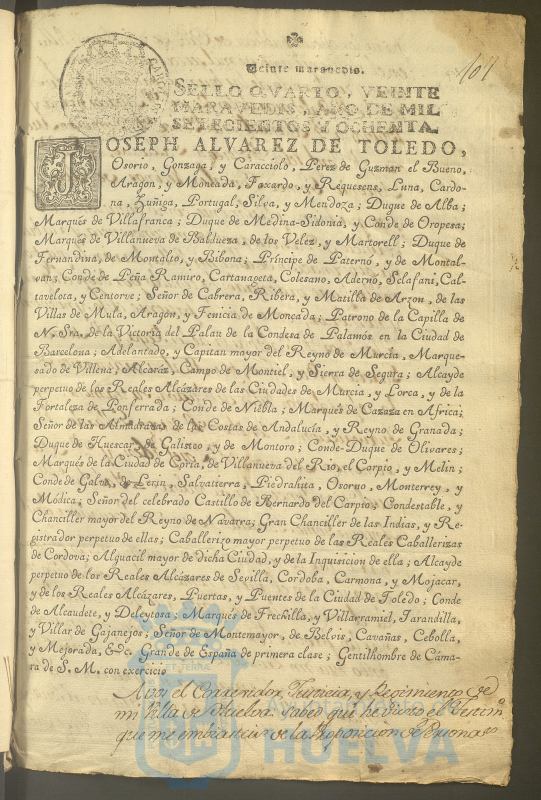 101
Veinte maravedis.
SELLO QVARTO, VEINTE
MARAVEDIS, AÑO DE MIL
SETECIENTOS Y OCHENTA.
JOSEPH ALVAREZ DE TOLEDO,
Osorio, Gonzaga, y Caracciolo, Perez de Guzman el Bueno,
Aragon, y Moncada, Faxardo, y Requesens, Luna, Cardo-
na, Zuñiga, Portugal, Silva, y Mendoza; Duque de Alba;
Marqués de Villafranca; Duque de Medina-Sidonia, y Conde de Oropesa;
Marqués de Villanueva de Baldueza, de los Velez, y Martorell; Duque de
Fernandina, de Montalto, y Bibona; Príncipe de Paternó, y de Montal-
van; Conde de Peña Ramiro, Cartanageta, Colesano, Adernó, Sclafani, Cal-
tavelota, y Centorve; Señor de Cabrera, Ribera, y Matilla de Arzon, de las
Villas de Mula, Aragon, y Fenicia de Moncada; Patrono de la Capilla de
N. Sra. de la Victoria del Palau de la Condesa de Palamós en la Ciudad de
Barcelona; Adelantado, y Capitan mayor del Reyno de Murcia, Marque-
sado de Villena, Alcaráz, Campo de Montiel, y Sierra de Segura; Alcayde
perpetuo de los Reales Alcázares de las Ciudades de Murcia, y Lorca, y de la
Fortaleza de Ponferrada; Conde de Niebla; Marqués de Cazaza en Africa;
Señor de las Almadrabas de las Costas de Andalucía, y Reyno de Granada;
Duque de Huescar, de Galisteo, y de Montoro; Conde-Duque de Olivares;
Marqués de la Ciudad de Coria, de Villanueva del Rio, el Carpio, y Melin;
Conde de Galve, de Lerin, Salvatierra, Piedrahita, Osorno, Monterrey, y
Módica; Señor del celebrado Castillo de Bernardo del Carpio; Condestable, y
Chanciller mayor del Reyno de Navarra; Gran Chanciller de las Indias, y Re-
gistrador perpetuo de ellas; Caballerizo mayor perpetuo de las Reales Caballerizas
de Cordova; Alguacil mayor de dicha Ciudad, y de la Inquisicion de ella; Alcayde
perpetuo de los Reales Alcázares de Sevilla, Cordoba, Carmona, y Mojacar,
y de los Reales Alcázares, Puertas, y Puentes de la Ciudad de Toledo; Conde
de Alcaudete, y Deleytosa; Marqués de Frechilla, y Villarramiel, Tarandilla,
y Villar de Gajanejos; Señor de Montemayor, de Belvis, Cavañas, Cebolla,
y Mejorada, &c. Grande de España de primera clase; Gentilhombre de Cáma-
ra de S. M. con exercicio
A vos el Correxidor, Justicia, y Regimiento de
mi Villa de Huelva: sabed que he visto el Testim.º
que me embiasteis de la Proposicion de Personas
Ayuntamiento de
HUELVA